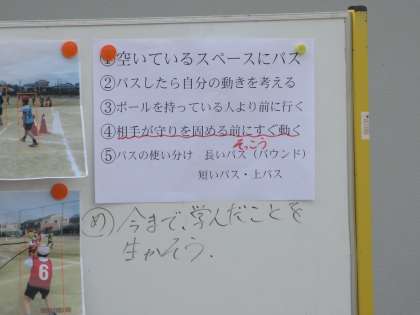 ①空いているスペースにパス
②パスしたら自分の動きを考える
③ボールを持っている人より前に行く
④相手が守りを固める前にすぐ動く
そっこう
⑤パスの使い分け 長いパス(バウンド)
短いパス・上パス
め 今まで、学んだことを
生かそう.
6